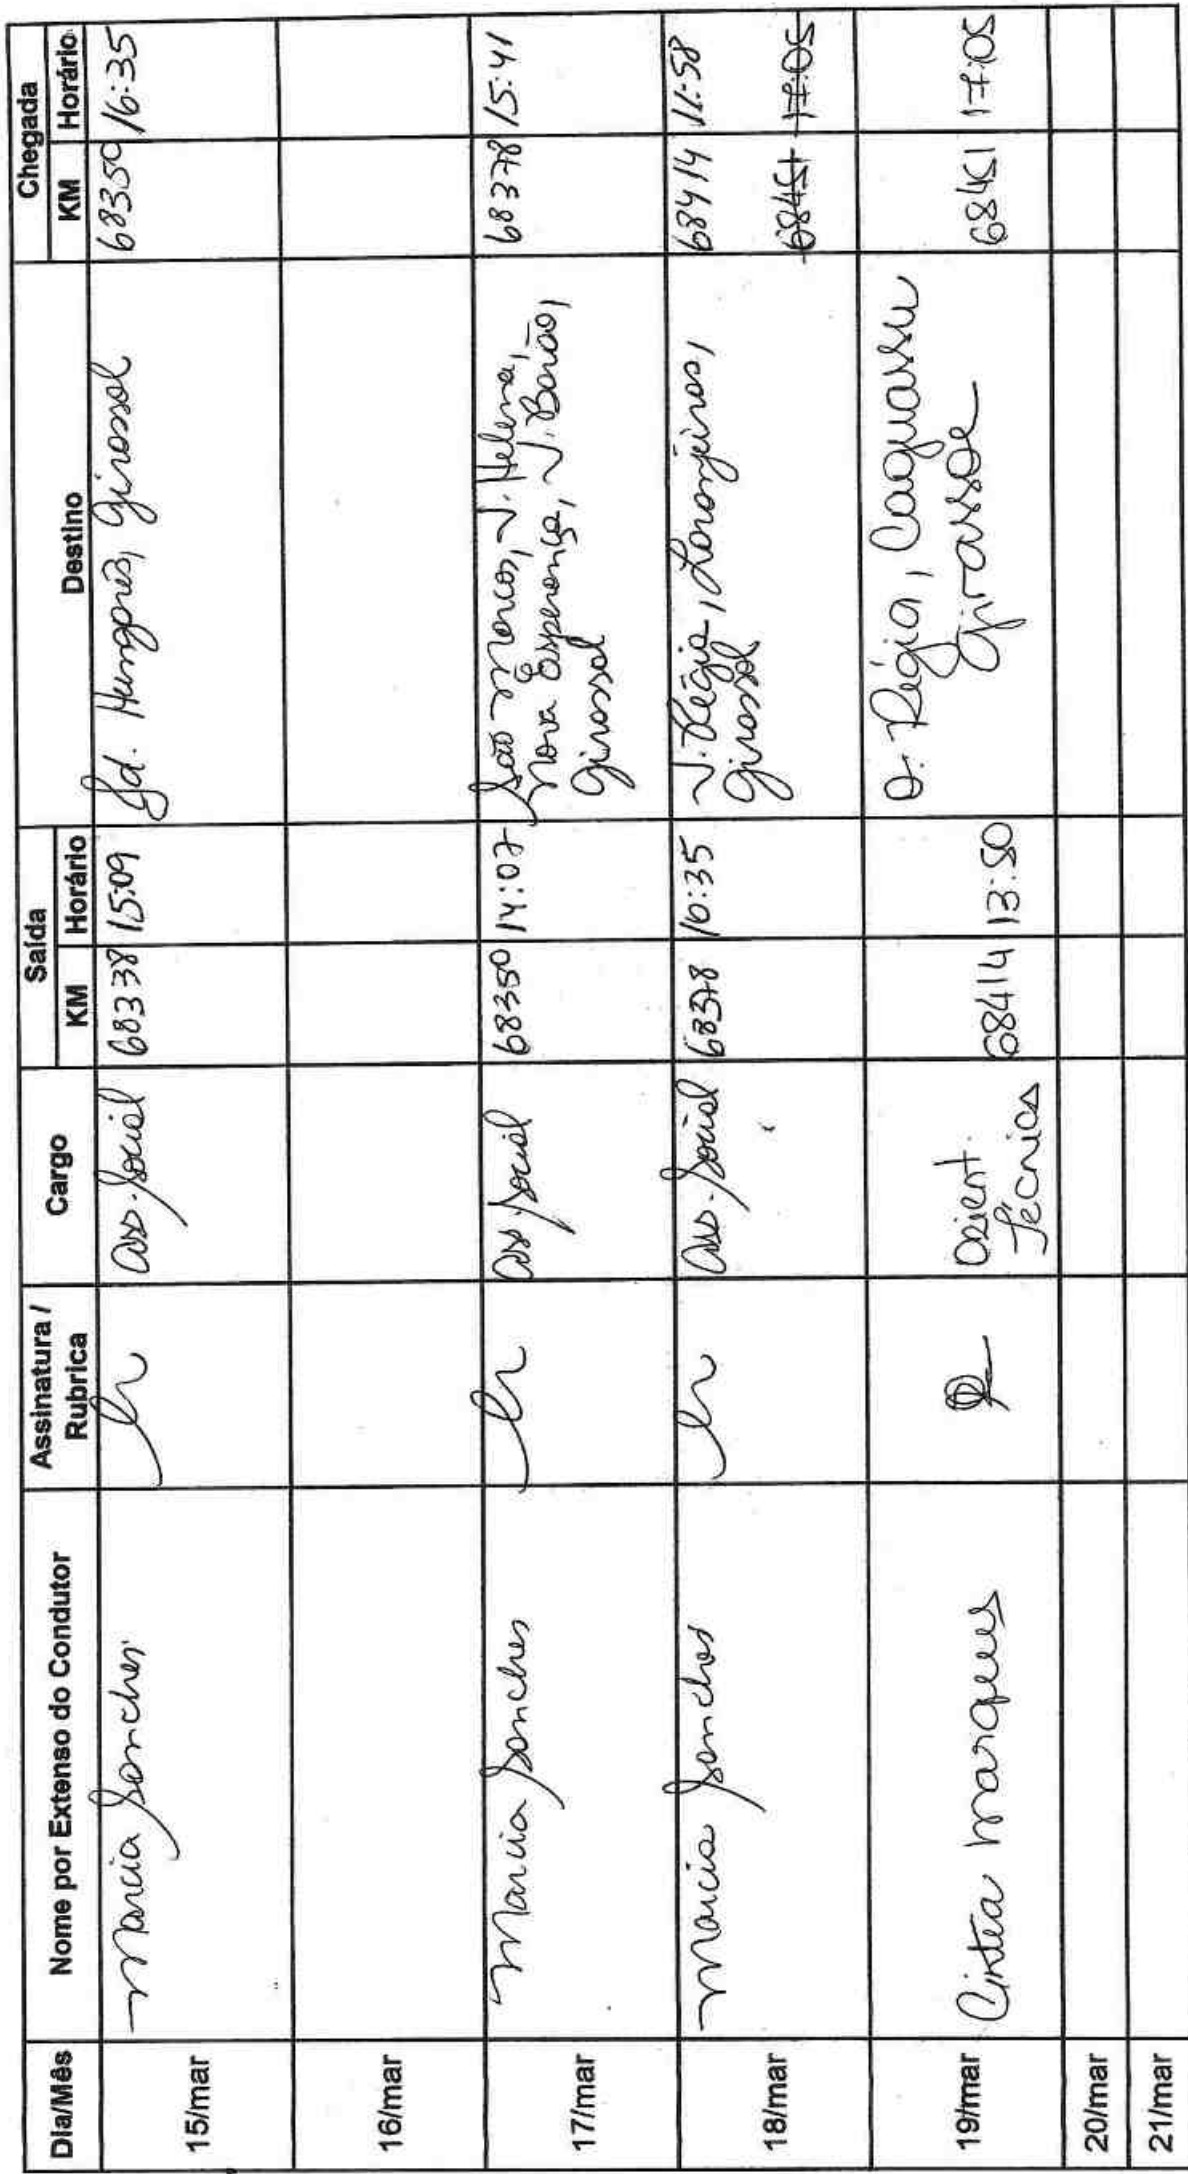 Dia/Mês Nome por Extenso do Condutor Assinatura / Rubrica Cargo Saída Destino Chegada
KM Horário KM Horário
15/mar Marcia Sanches Ass. Social 68338 15:09 Jd. Hungarês, Girassol 68350 16:35
16/mar
17/mar Marcia Sanches Ass. Social 68350 14:07 São Marcos, J. Helena, 68378 15:41
Nova Esperança, J. Barão,
Girassol
18/mar Marcia Sanches Ass. Social 68378 10:35 V. Régia, Laranjeiras, 68414 11:58
Girassol 68451 17:05
19/mar Cintea Marques Orient. Técnica 68414 13:50 V. Régia, Caguassu 68451 17:05
Girassol
20/mar
21/mar